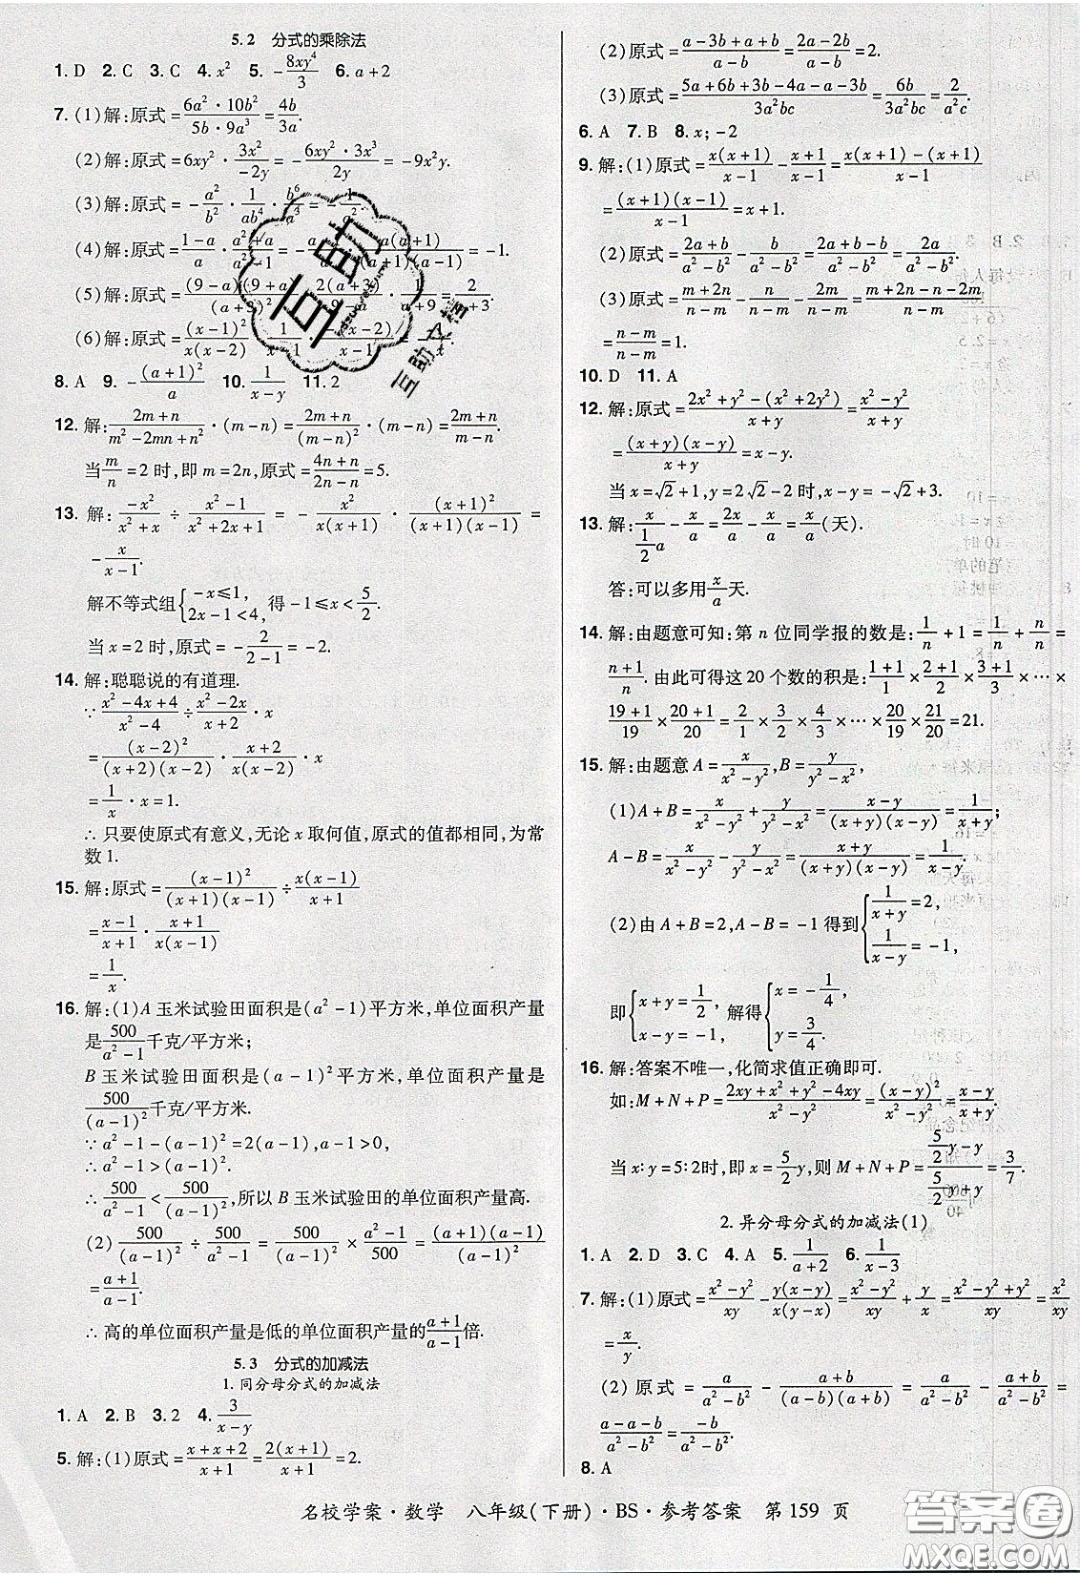 5.2 分式的乘除法
1. D 2. C 3. C 4. x² 5. -8xy⁴/3 6. a+2
7. (1)解:原式=6a²·10b²/5b·9a³=4b/3a.
(2)解:原式=6xy²·3x²/-2y=-6xy²·3x³/2y=-9x²y.
(3)解:原式=-a²/b²·1/ab⁴·b⁶
(4)解:原式=1-a/a·a²+a a(a+1) =-1.
(5)解:原式=(9-a)(9+a)/(a+3)² 2(a+3) 2
(6)解:原式=(x-1)²/x(x-2)·1/x-1
8. A 9. -(a+1)²/a 10. 1/x-y 11. 2
12. 解:2m+n/m²-2mn+n²·(m-n)=2m+n/(m-n)²·(m-n)=2m+n/m-n.
当m/n=2时,即m=2n,原式=4n+n/2n-n=5.
13. 解:-x²/x²+x÷x²-1/x²+2x+1=-x²/x(x+1)·(x+1)²/(x+1)(x-1)=
-x/x-1.
解不等式组{-x≤1, 2x-1<4, 得-1≤x<5/2.
当x=2时,原式=-2/2-1=-2.
14. 解:聪聪说的有道理.
∵x²-4x+4/x²-4÷x²-2x/x+2·x
=(x-2)²/(x+2)(x-2)·x+2/x(x-2)·x
=1/x·x=1.
∴只要使原式有意义,无论x取何值,原式的值都相同,为常
数1.
15. 解:原式=(x-1)²/(x+1)(x-1)÷x(x-1)/x+1
=x-1/x+1·x+1/x(x-1)
=1/x.
16. 解:(1)A玉米试验田面积是(a²-1)平方米,单位面积产量
是500/a²-1千克/平方米;
B玉米试验田面积是(a-1)²平方米,单位面积产量是
500/(a-1)²千克/平方米.
∵a²-1-(a-1)²=2(a-1),a-1>0,
∴a²-1>(a-1)².
∴500/a²-1<500/(a-1)²,所以B玉米试验田的单位面积产量高.
(2)500/(a-1)²÷500/a²-1=500/(a-1)²×a²-1/500=(a+1)(a-1)/(a-1)²
=a+1/a-1.
∴高的单位面积产量是低的单位面积产量的a+1/a-1倍.
5.3 分式的加减法
1. 同分母分式的加减法
1. A 2. B 3. 2 4. 3/x-y
5. 解:(1)原式=x+x+2/x+1=2(x+1)/x+1=2.
(2)原式=a-3b+a+b/a-b=2a-2b/a-b=2.
(3)原式=5a+6b+3b-4-a-3b+4/3a²bc=6b/3a²bc=2/a²c.
6. A 7. B 8. x;-2
9. 解:(1)原式=x(x+1)/x-1-x+1/x-1=x(x+1)-(x+1)/x-1
=(x+1)(x-1)/x-1=x+1.
(2)原式=2a+b/a²-b²-b/a²-b²=2a+b-b/a²-b²=2a/a²-b².
(3)原式=m+2n/n-m+n/n-m-2m/n-m=m+2n+n-2m/n-m=
n-m/n-m=1.
10. D 11. A
12. 解:原式=2x²+y²-(x²+2y²)/x+y=x²-y²/x+y
=(x+y)(x-y)/x+y=x-y.
当x=√2+1,y=2√2-2时,x-y=-√2+3.
13. 解:x/½a-x/a=2x/a-x/a=x/a(天).
答:可以多用x/a天.
14. 解:由题意可知:第n位同学报的数是:1/n+1=1/n+n/n=
n+1/n.由此可得这20个数的积是:1+1/1×2+1/2×3+1/3×…×
19+1/19×20+1/20=2/1×3/2×4/3×…×20/19×21/20=21.
15. 解:由题意A=x/x²-y²,B=y/x²-y²,
(1)A+B=x/x²-y²+y/x²-y²=x+y/(x+y)(x-y)=1/x-y;
A-B=x/x²-y²-y/x²-y²=x-y/(x+y)(x-y)=1/x+y.
(2)由A+B=2,A-B=-1得到{1/x+y=2, 1/x-y=-1,
即{x+y=1/2, x-y=-1, 解得{x=-1/4, y=3/4.
16. 解:答案不唯一,化简求值正确即可.
如:M+N+P=2xy+x²+y²-4xy/x²-y²=(x-y)²/x²-y²=x-y/x+y.
当x:y=5:2时,即x=5/2y,则M+N+P=5/2y-y/5/2y+y=3/7.
2. 异分母分式的加减法(1)
1. A 2. D 3. C 4. A 5. 1/a+2 6. 1/x-3
7. 解:(1)原式=x²-y²/xy-y(x-y)/x(y-x)=x²-y²/xy+y/x=x²-y²+y²/xy=x²/xy=
x/y.
(2)原式=a/a²-b²-a+b/(a-b)(a+b)=a/a²-b²-a+b/a²-b²=
a-a-b/a²-b²=-b/a²-b².
8. A
名校学案·数学 八年级(下册)·BS·参考答案 第159页
互助
互助文档
答案圈
MXQE.COM